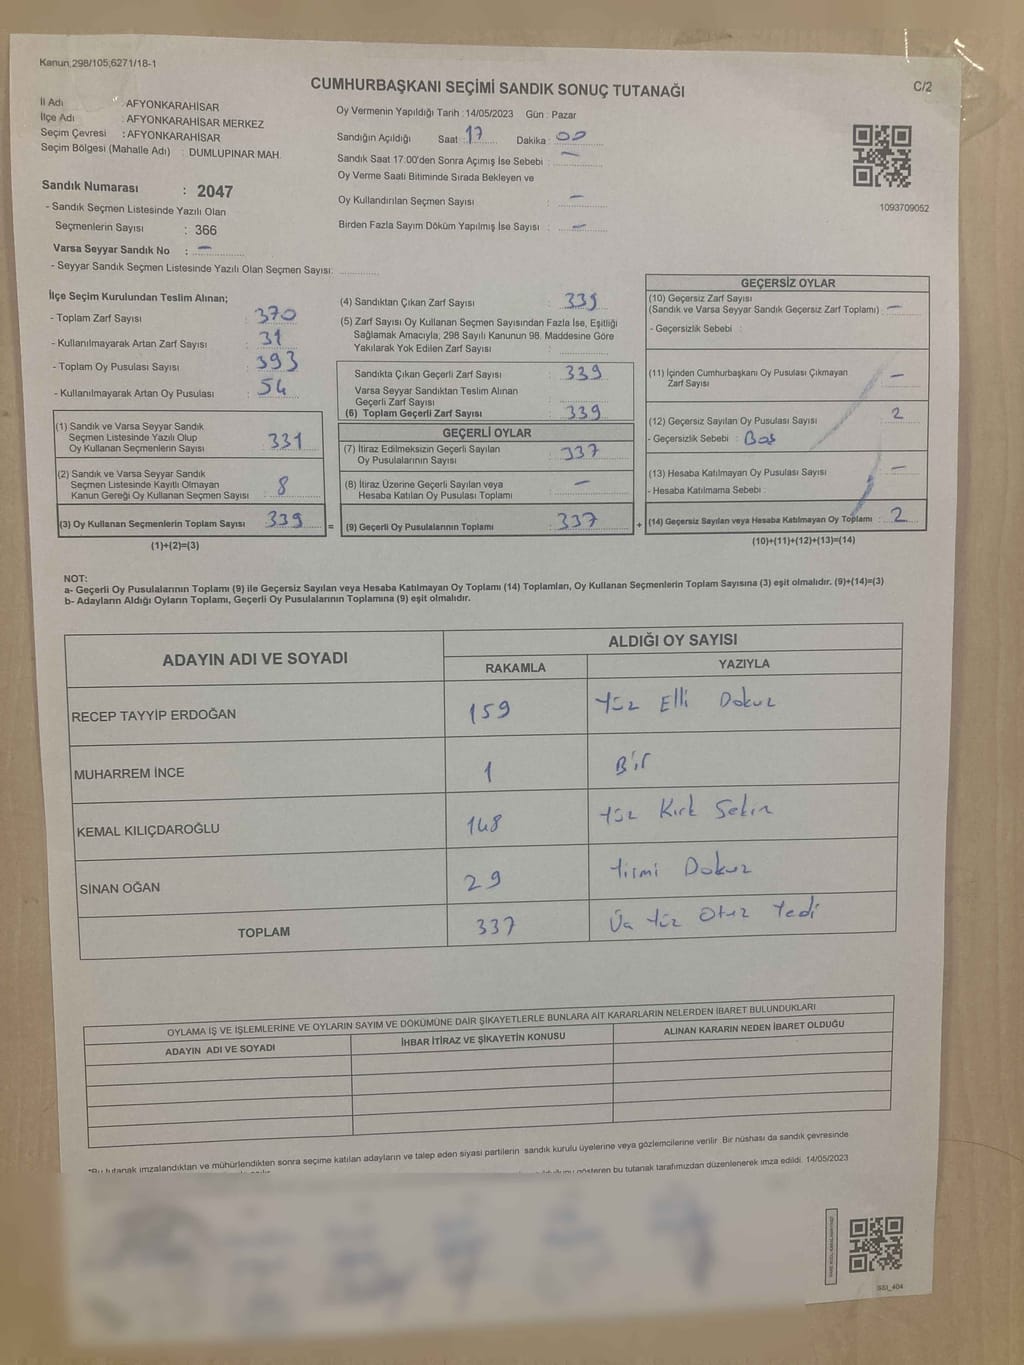 Kanun;298/105;6271/18-1
CUMHURBAŞKANI SEÇİMİ SANDIK SONUÇ TUTANAĞI
C/2
İl Adı : AFYONKARAHİSAR
İlçe Adı : AFYONKARAHİSAR MERKEZ
Seçim Çevresi : AFYONKARAHİSAR
Seçim Bölgesi (Mahalle Adı) : DUMLUPINAR MAH.
Oy Vermenin Yapıldığı Tarih : 14/05/2023 Gün : Pazar
Sandığın Açıldığı Saat : 17 Dakika : 00
Sandık Saat 17:00'den Sonra Açımış İse Sebebi : —
Oy Verme Saati Bitiminde Sırada Bekleyen ve
Oy Kullandırılan Seçmen Sayısı : —
Birden Fazla Sayım Döküm Yapılmış İse Sayısı : —
1093709052
Sandık Numarası : 2047
- Sandık Seçmen Listesinde Yazılı Olan
Seçmenlerin Sayısı : 366
Varsa Seyyar Sandık No : —
- Seyyar Sandık Seçmen Listesinde Yazılı Olan Seçmen Sayısı:
İlçe Seçim Kurulundan Teslim Alınan;
- Toplam Zarf Sayısı : 370
- Kullanılmayarak Artan Zarf Sayısı : 31
- Toplam Oy Pusulası Sayısı : 393
- Kullanılmayarak Artan Oy Pusulası : 54
(1) Sandık ve Varsa Seyyar Sandık
Seçmen Listesinde Yazılı Olup
Oy Kullanan Seçmenlerin Sayısı 331
(2) Sandık ve Varsa Seyyar Sandık
Seçmen Listesinde Kayıtlı Olmayan
Kanun Gereği Oy Kullanan Seçmen Sayısı 8
(3) Oy Kullanan Seçmenlerin Toplam Sayısı 339
(1)+(2)=(3)
(4) Sandıktan Çıkan Zarf Sayısı : 339
(5) Zarf Sayısı Oy Kullanan Seçmen Sayısından Fazla İse, Eşitliği
Sağlamak Amacıyla, 298 Sayılı Kanunun 98. Maddesine Göre
Yakılarak Yok Edilen Zarf Sayısı :
Sandıkta Çıkan Geçerli Zarf Sayısı : 339
Varsa Seyyar Sandıktan Teslim Alınan
Geçerli Zarf Sayısı
(6) Toplam Geçerli Zarf Sayısı : 339
GEÇERLİ OYLAR
(7) İtiraz Edilmeksizin Geçerli Sayılan
Oy Pusulalarının Sayısı : 337
(8) İtiraz Üzerine Geçerli Sayılan veya
Hesaba Katılan Oy Pusulası Toplamı : —
= (9) Geçerli Oy Pusulalarının Toplamı : 337 +
GEÇERSİZ OYLAR
(10) Geçersiz Zarf Sayısı
(Sandık ve Varsa Seyyar Sandık Geçersiz Zarf Toplamı) : —
- Geçersizlik Sebebi :
(11) İçinden Cumhurbaşkanı Oy Pusulası Çıkmayan
Zarf Sayısı : —
(12) Geçersiz Sayılan Oy Pusulası Sayısı : 2
- Geçersizlik Sebebi : Boş
(13) Hesaba Katılmayan Oy Pusulası Sayısı : —
- Hesaba Katılmama Sebebi :
(14) Geçersiz Sayılan veya Hesaba Katılmayan Oy Toplamı : 2
(10)+(11)+(12)+(13)=(14)
NOT:
a- Geçerli Oy Pusulalarının Toplamı (9) ile Geçersiz Sayılan veya Hesaba Katılmayan Oy Toplamı (14) Toplamları, Oy Kullanan Seçmenlerin Toplam Sayısına (3) eşit olmalıdır. (9)+(14)=(3)
b- Adayların Aldığı Oyların Toplamı, Geçerli Oy Pusulalarının Toplamına (9) eşit olmalıdır.
ADAYIN ADI VE SOYADI
ALDIĞI OY SAYISI
RAKAMLA YAZIYLA
RECEP TAYYİP ERDOĞAN 159 Yüz Elli Dokuz
MUHARREM İNCE 1 Bir
KEMAL KILIÇDAROĞLU 148 Yüz Kırk Sekiz
SİNAN OĞAN 29 Yirmi Dokuz
TOPLAM 337 Üç Yüz Otuz Yedi
OYLAMA İŞ VE İŞLEMLERİNE VE OYLARIN SAYIM VE DÖKÜMÜNE DAİR ŞİKAYETLERLE BUNLARA AİT KARARLARIN NELERDEN İBARET BULUNDUKLARI
ADAYIN ADI VE SOYADI İHBAR İTİRAZ VE ŞİKAYETİN KONUSU ALINAN KARARIN NEDEN İBARET OLDUĞU
*Bu tutanak imzalandıktan ve mühürlendikten sonra seçime katılan adayların ve talep eden siyasi partilerin sandık kurulu üyelerine veya gözlemcilerine verilir. Bir nüshası da sandık çevresinde
gösteren bu tutanak tarafımızdan düzenlenerek imza edildi. 14/05/2023
SSI_404